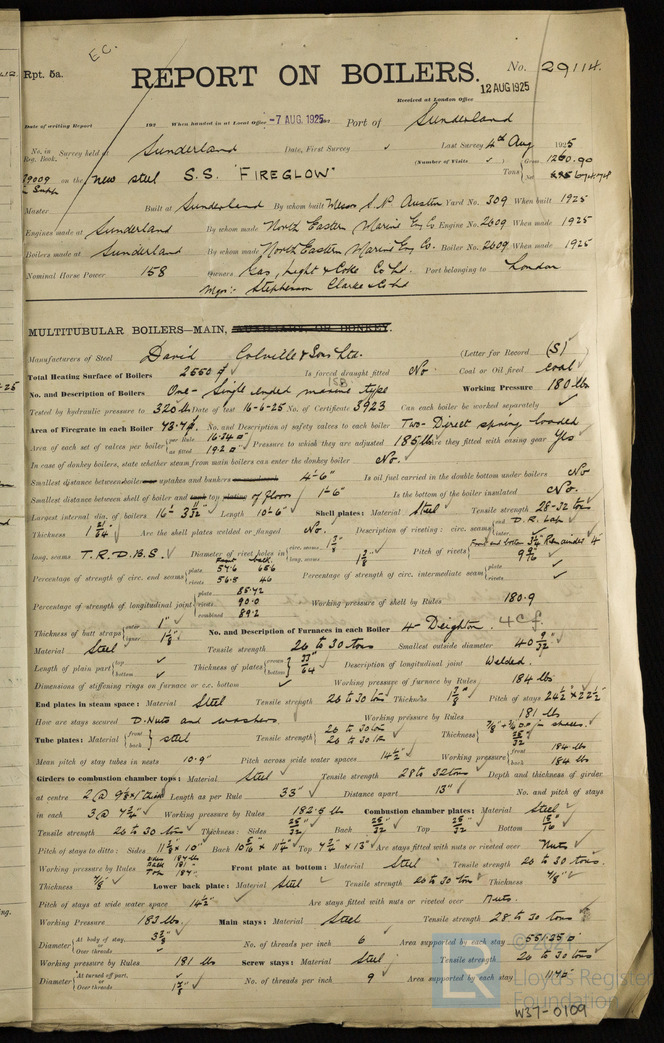 E.C.
Rpt. 5a.
REPORT ON BOILERS.
No. 29114.
12 AUG 1925
Received at London Office
Date of writing Report 192 When handed in at Local Office -7 AUG. 1925 Port of Sunderland
No. in Reg. Book. Survey held at Sunderland Date, First Survey ✓ Last Survey 4th Aug 1925
29009 in Supp on the New steel S.S. "FIREGLOW" (Number of Visits ✓ ) Tons Gross 1260.90 Net
Master Built at Sunderland By whom built Messrs S.P. Austin Yard No. 309 When built 1925
Engines made at Sunderland By whom made North Eastern Marine Eng Co Engine No. 2609 When made 1925
Boilers made at Sunderland By whom made North Eastern Marine Eng Co. Boiler No. 2609 When made 1925
Nominal Horse Power 158 Owners Gas, Light & Coke Co Ld. Port belonging to London
Mgrs:- Stephenson Clarke & Co Ld
MULTITUBULAR BOILERS—MAIN, AUXILIARY, OR DONKEY.
Manufacturers of Steel David Colville & Sons Ltd. (Letter for Record (S) )
Total Heating Surface of Boilers 2550 Is forced draught fitted No. Coal or Oil fired coal
No. and Description of Boilers One - Single ended marine type Working Pressure 180 lbs
Tested by hydraulic pressure to 320 lbs Date of test 16-6-25 No. of Certificate 3923 Can each boiler be worked separately ✓
Area of Firegrate in each Boiler 73.7 No. and Description of safety valves to each boiler Two - Direct spring loaded
Area of each set of valves per boiler per Rule 16.34 as fitted 19.2 Pressure to which they are adjusted 185 lbs Are they fitted with easing gear Yes
In case of donkey boilers, state whether steam from main boilers can enter the donkey boiler No.
Smallest distance between boilers or uptakes and bunkers or woodwork 4'-6" Is oil fuel carried in the double bottom under boilers No
Smallest distance between shell of boiler and tank top plating of floors 1'-6" Is the bottom of the boiler insulated No.
Largest internal dia. of boilers 16'-3 Length 10'-6" Shell plates: Material Steel Tensile strength 28-32 tons
Thickness 1 21/64" Are the shell plates welded or flanged No. Description of riveting: circ. seams end D.R. Lap inter. ✓
long. seams T.R.D.B.S. Diameter of rivet holes in circ. seams 1 3/8" long. seams 1 3/8" Pitch of rivets 9 9/16"
Percentage of strength of circ. end seams plate 57.6 rivets 56.5 Percentage of strength of circ. intermediate seam plate ✓ rivets ✓
Percentage of strength of longitudinal joint plate 85.72 rivets 90.0 combined 89.2 Working pressure of shell by Rules 180.9
Thickness of butt straps outer 1" inner 1 1/8" No. and Description of Furnaces in each Boiler 4 - Deighton. 4 C.f.
Material Steel Tensile strength 26 to 30 tons Smallest outside diameter 40 9/32"
Length of plain part top ✓ bottom ✓ Thickness of plates crown bottom 33/64" Description of longitudinal joint Welded.
Dimensions of stiffening rings on furnace or c.c. bottom ✓ Working pressure of furnace by Rules 184 lbs
End plates in steam space: Material Steel Tensile strength 26 to 30 tons Thickness 1 7/8" Pitch of stays 24 1/2" x 22 1/2"
How are stays secured D. Nuts and washers. Working pressure by Rules 181 lbs
Tube plates: Material front back steel Tensile strength 26 to 30 tons 26 to 30 Thickness 25/32" 
Mean pitch of stay tubes in nests 10.9" Pitch across wide water spaces 14 1/2" Working pressure front 184 lbs back 184 lbs
Girders to combustion chamber tops: Material Steel Tensile strength 28 to 32 tons Depth and thickness of girder
at centre 2 @ Length as per Rule 33" Distance apart 13" No. and pitch of stays
in each 3 @ 7 3/4" Working pressure by Rules 182.5 lb Combustion chamber plates: Material Steel
Tensile strength 26 to 30 tons Thickness: Sides 25/32" Back 25/32" Top 25/32" Bottom 15/16"
Pitch of stays to ditto: Sides 11 5/8" x 10" Back Top 7 3/4" x 13" Are stays fitted with nuts or riveted over Nuts
Working pressure by Rules Sides 184 lb Back 181 Top 184 Front plate at bottom: Material Steel Tensile strength 26 to 30 tons.
Thickness 7/8" Lower back plate: Material Steel Tensile strength 26 to 30 tons Thickness 7/8"
Pitch of stays at wide water space 14 1/2" Are stays fitted with nuts or riveted over Nuts.
Working Pressure 183 lbs. Main stays: Material Steel Tensile strength 28 to 30 tons
Diameter At body of stay, or Over threads 3 3/8" No. of threads per inch 6 Area supported by each stay 551.25
Working pressure by Rules 181 lbs Screw stays: Material Steel Tensile strength 26 to 30 tons
Diameter At turned off part, or Over threads 1 7/8" No. of threads per inch 9 Area supported by each stay
© 2021
LR
Lloyd's Register
Foundation
W37-0109